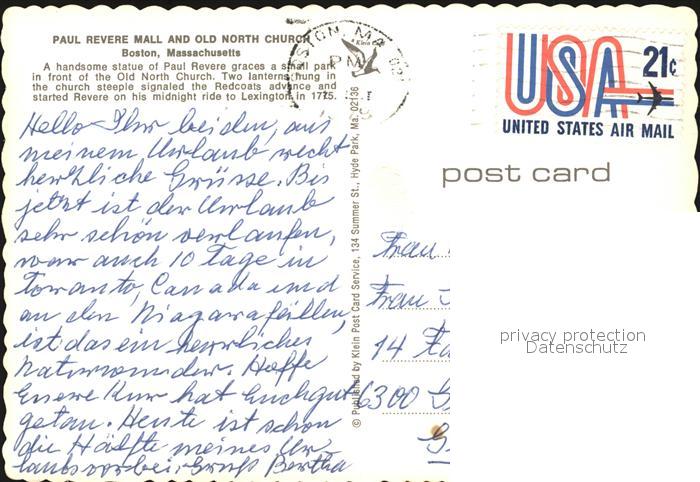 PAUL REVERE MALL AND OLD NORTH CHURCH
Boston, Massachusetts
A handsome statue of Paul Revere graces a small park
in front of the Old North Church. Two lanterns hung in
the church steeple signaled the Redcoats advance and
started Revere on his midnight ride to Lexington in 1775.
Hello Ihr beiden, aus
meinem Urlaub recht
herzliche Grüsse. Bis
jetzt ist der Urlaub
sehr schön verlaufen,
war auch 10 Tage in
Toronto, Canada und
an den Niagarafällen,
ist das ein herrliches
Naturwunder. Hoffe
Euere Kur hat Euch gut
getan. Heute ist schon
die Hälfte meines Ur-
laubs vorbei. Gruß Bertha
© Published by Klein Post Card Service, 134 Summer St., Hyde Park, Ma. 02136
a Klein Card
MA
PM
USA 21¢
UNITED STATES AIR MAIL
post card
Frau
Frau
14
6300
privacy protection
Datenschutz